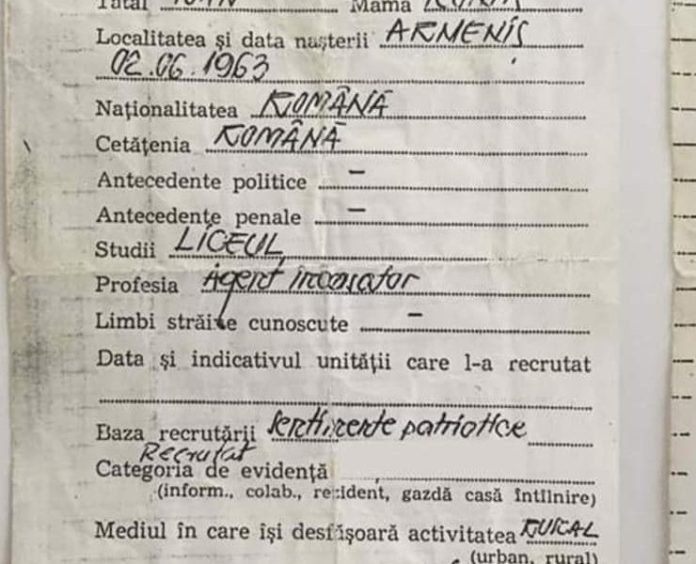 Tatăl IOAN Mama
Localitatea și data nașterii ARMENIȘ
02.06.1963
Naționalitatea ROMÂNĂ
Cetățenia ROMÂNĂ
Antecedente politice –
Antecedente penale –
Studii LICEUL
Profesia Agent încasator
Limbi străine cunoscute –
Data și indicativul unității care l-a recrutat
Baza recrutării sentimente patriotice
Recrutat
Categoria de evidență
(inform., colab., rezident, gazdă casă întîlnire)
Mediul în care își desfășoară activitatea RURAL
(urban, rural)